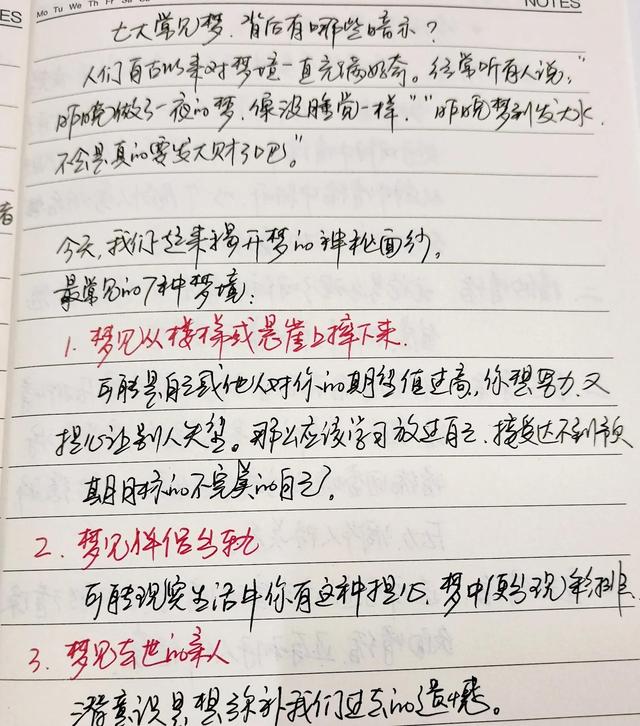 ES
Mo Tu We Th Fr Sa Su
NOTES
七大常见梦,背后有哪些暗示?
人们自古以来对梦境一直充满好奇。经常听有人说,"
昨晚做了一夜的梦,像没睡觉一样,""昨晚梦到发大水,
不会是真的要发大财了吧"。
者
今天,我们起来揭开梦的神秘面纱。
最常见的7种梦境:
1. 梦见从楼梯或悬崖上摔下来.
可能是自己或他人对你的期望值过高,你想努力,又
担心让别人失望。那么应该学习放过自己、接受达不到预
期目标的不完美的自己。
2. 梦见伴侣出轨
可能现实生活中你有这种担心,梦中便出现彩排
3. 梦见去世的亲人
潜意识是想弥补我们过去的遗憾。